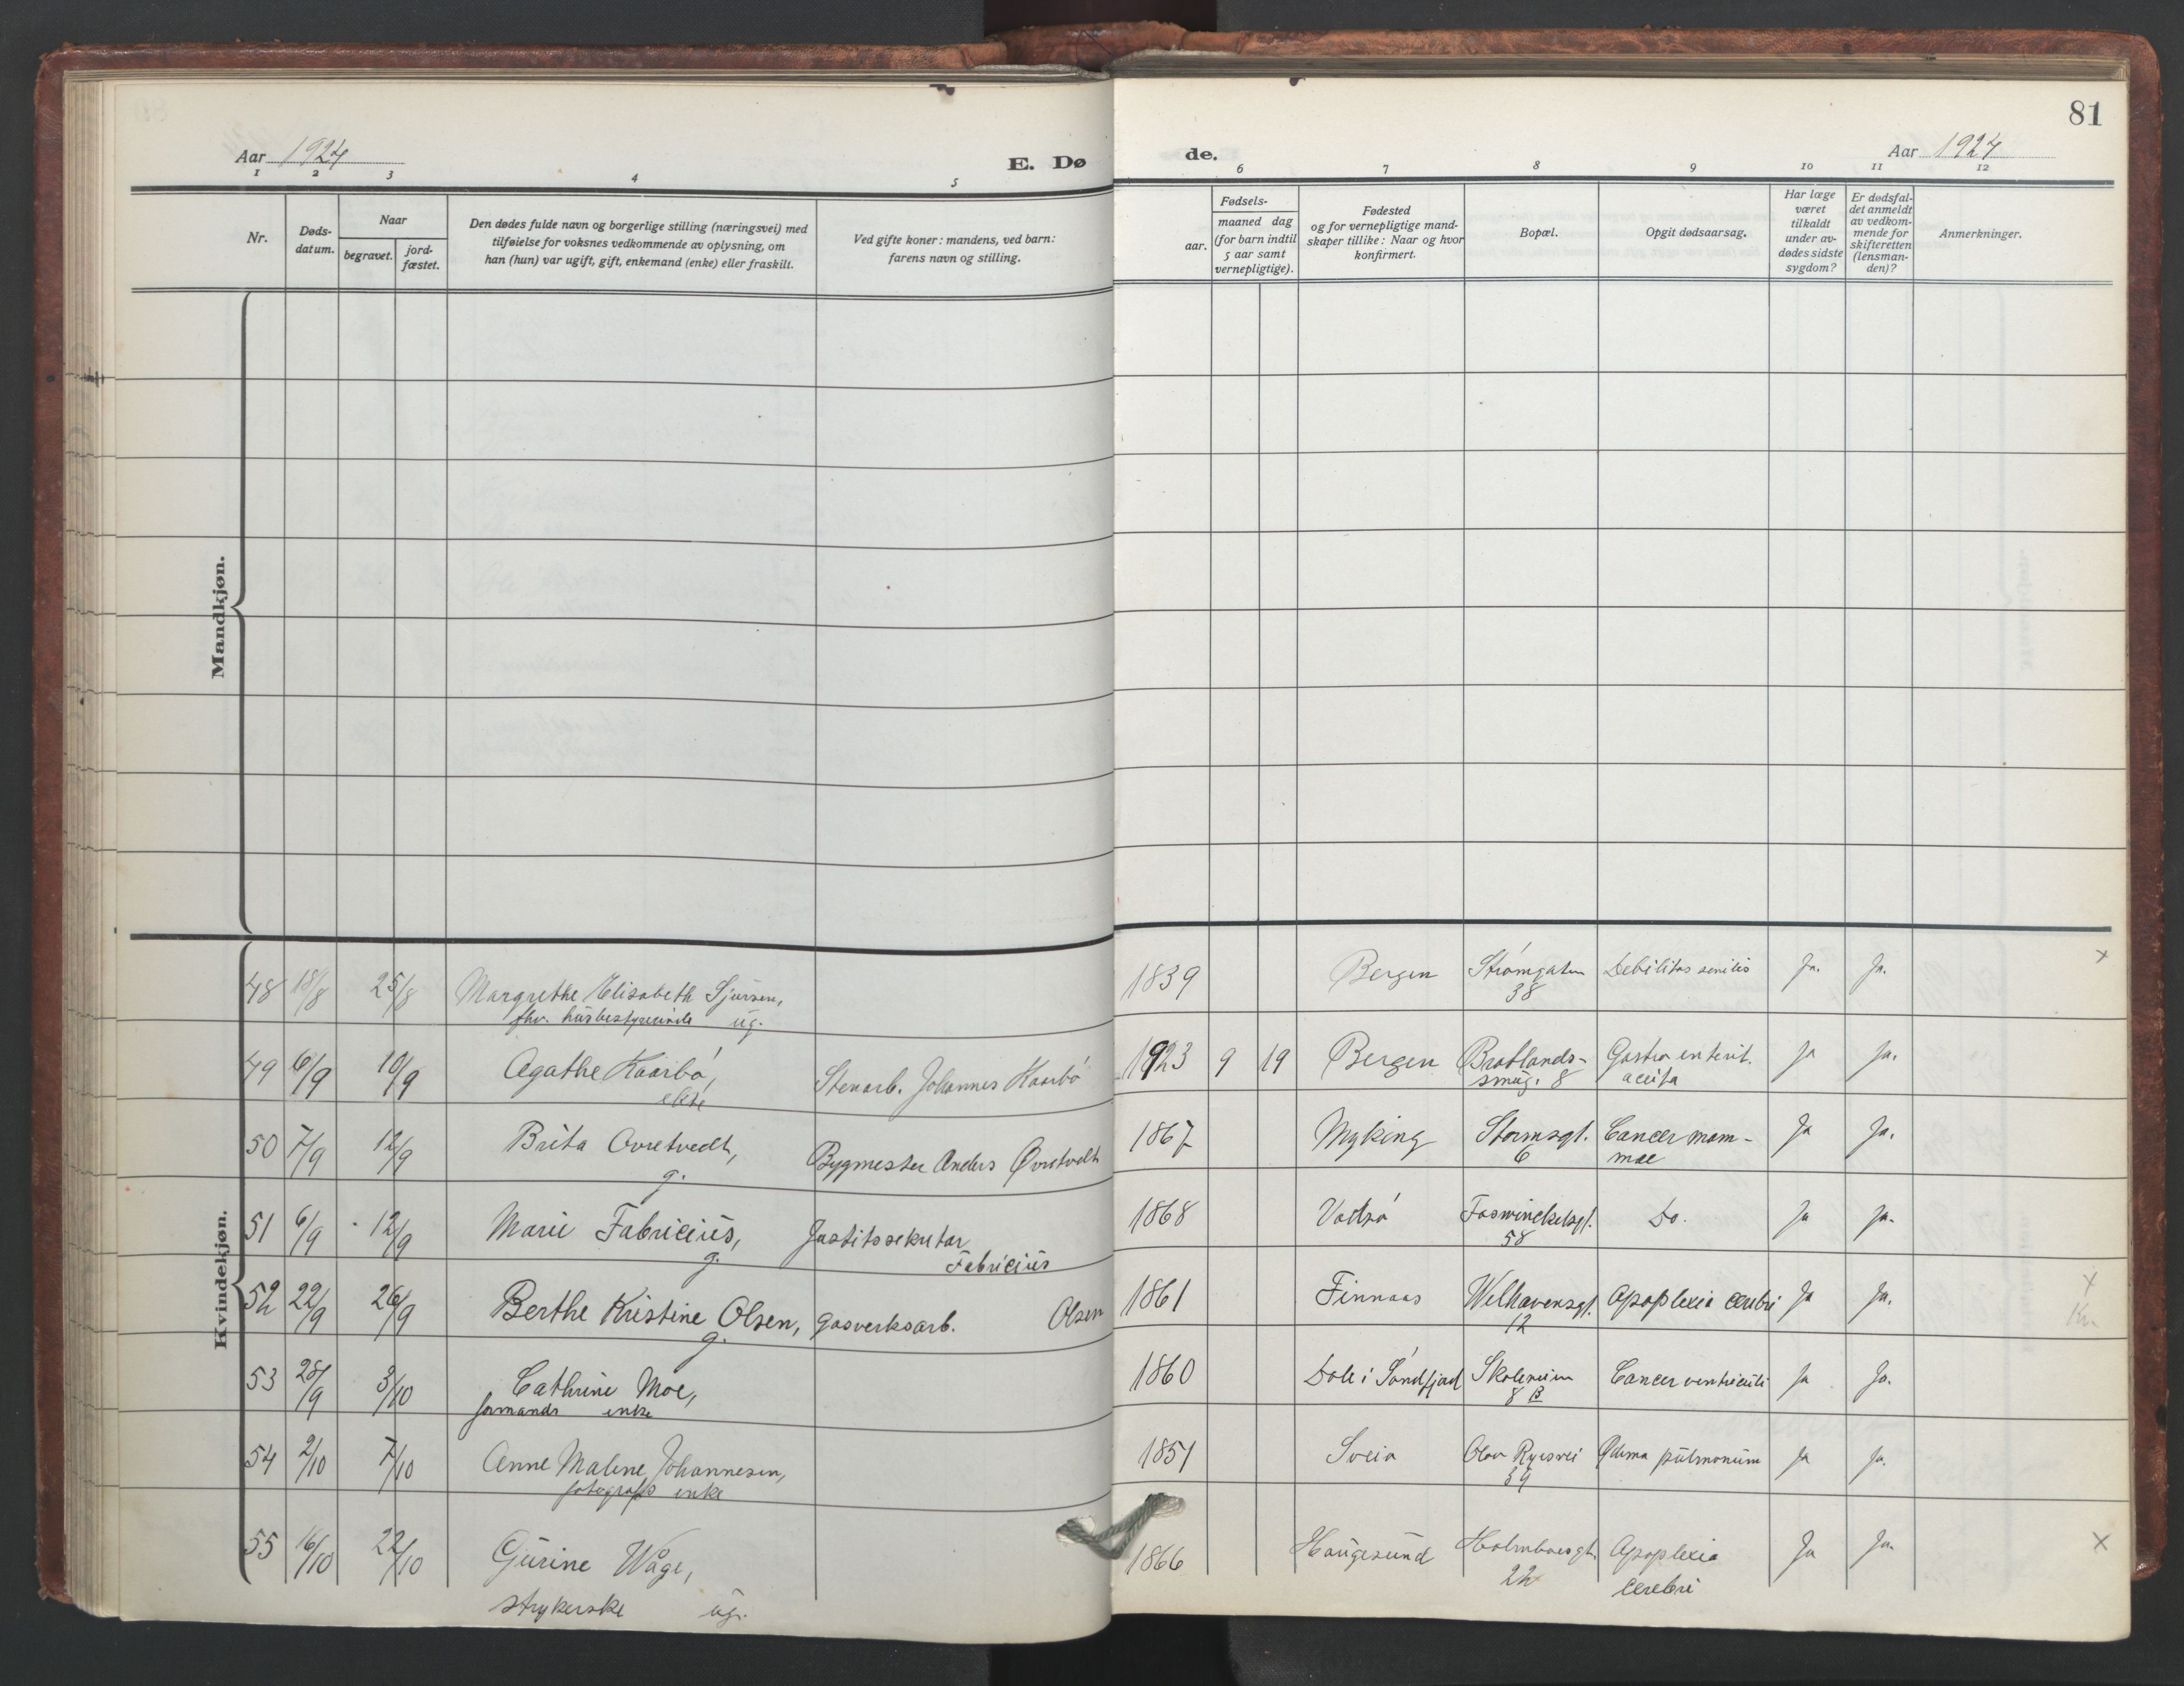 81
Aar 1924
E. Dø
de.
Aar 1924
1 2 3 4 5 6 7 8 9 10 11 12
Nr.
Døds-
datum.
Naar
begravet.
jord-
fæstet.
Den dødes fulde navn og borgerlige stilling (næringsvei) med
tilføielse for voksnes vedkommende av oplysning, om
han (hun) var ugift, gift, enkemand (enke) eller fraskilt.
Ved gifte koner: mandens, ved barn:
farens navn og stilling.
Fødsels-
aar.
maaned dag
(for barn indtil
5 aar samt
vernepligtige).
Fødested
og for vernepligtige mand-
skaper tillike: Naar og hvor
konfirmert.
Bopæl.
Opgit dødsaarsag.
Har læge
været
tilkaldt
under av-
dødes sidste
sygdom?
Er dødsfal-
det anmeldt
av vedkom-
mende for
skifteretten
(lensman-
den)?
Anmerkninger.
Mandkjøn.
Kvindekjøn.
48 18/8 25/8 Margrethe Elisabeth Sjursen, 1839 Bergen Strømgaten Debilitas senilis Ja. Ja. x
fhv. husbestyrerinde ug. 38
49 6/9 10/9 Agathe Kaarbø, Stenarb. Johannes Kaarbø 1923 9 19 Bergen Bratlands- Gastro enterit. Ja Ja.
ekte smug. 8 acuta
50 7/9 12/9 Brita Øvretvedt, Bygmester Anders Øvretvedt 1867 Myking Stormsgt. Cancer mam- Ja Ja.
g. 6 mae
51 6/9 12/9 Marie Fabricius, Justitssekretær 1868 Vadsø Foswinckelsgt. Do. Ja Ja.
g. Fabricius 58
52 22/9 26/9 Berthe Kristine Olsen, Gasverksarb. Olsen 1861 Finnaas Welhavensgt. Apoplexia cerebri Ja Ja. x
g. 12
53 28/9 3/10 Cathrine Moe, 1860 Dale i Søndfjord Skolerum Cancer ventriculi Ja Ja.
formands enke 8 B
54 2/10 7/10 Anne Malene Johannesen, 1851 Sveio Olav Ryesvei Ødema pulmonum Ja Ja.
fotografs enke 39
55 16/10 22/10 Gurine Wåge, 1866 Haugesund Holmboesgt. Apoplexia Ja Ja. x
strykerske ug. 22 cerebri